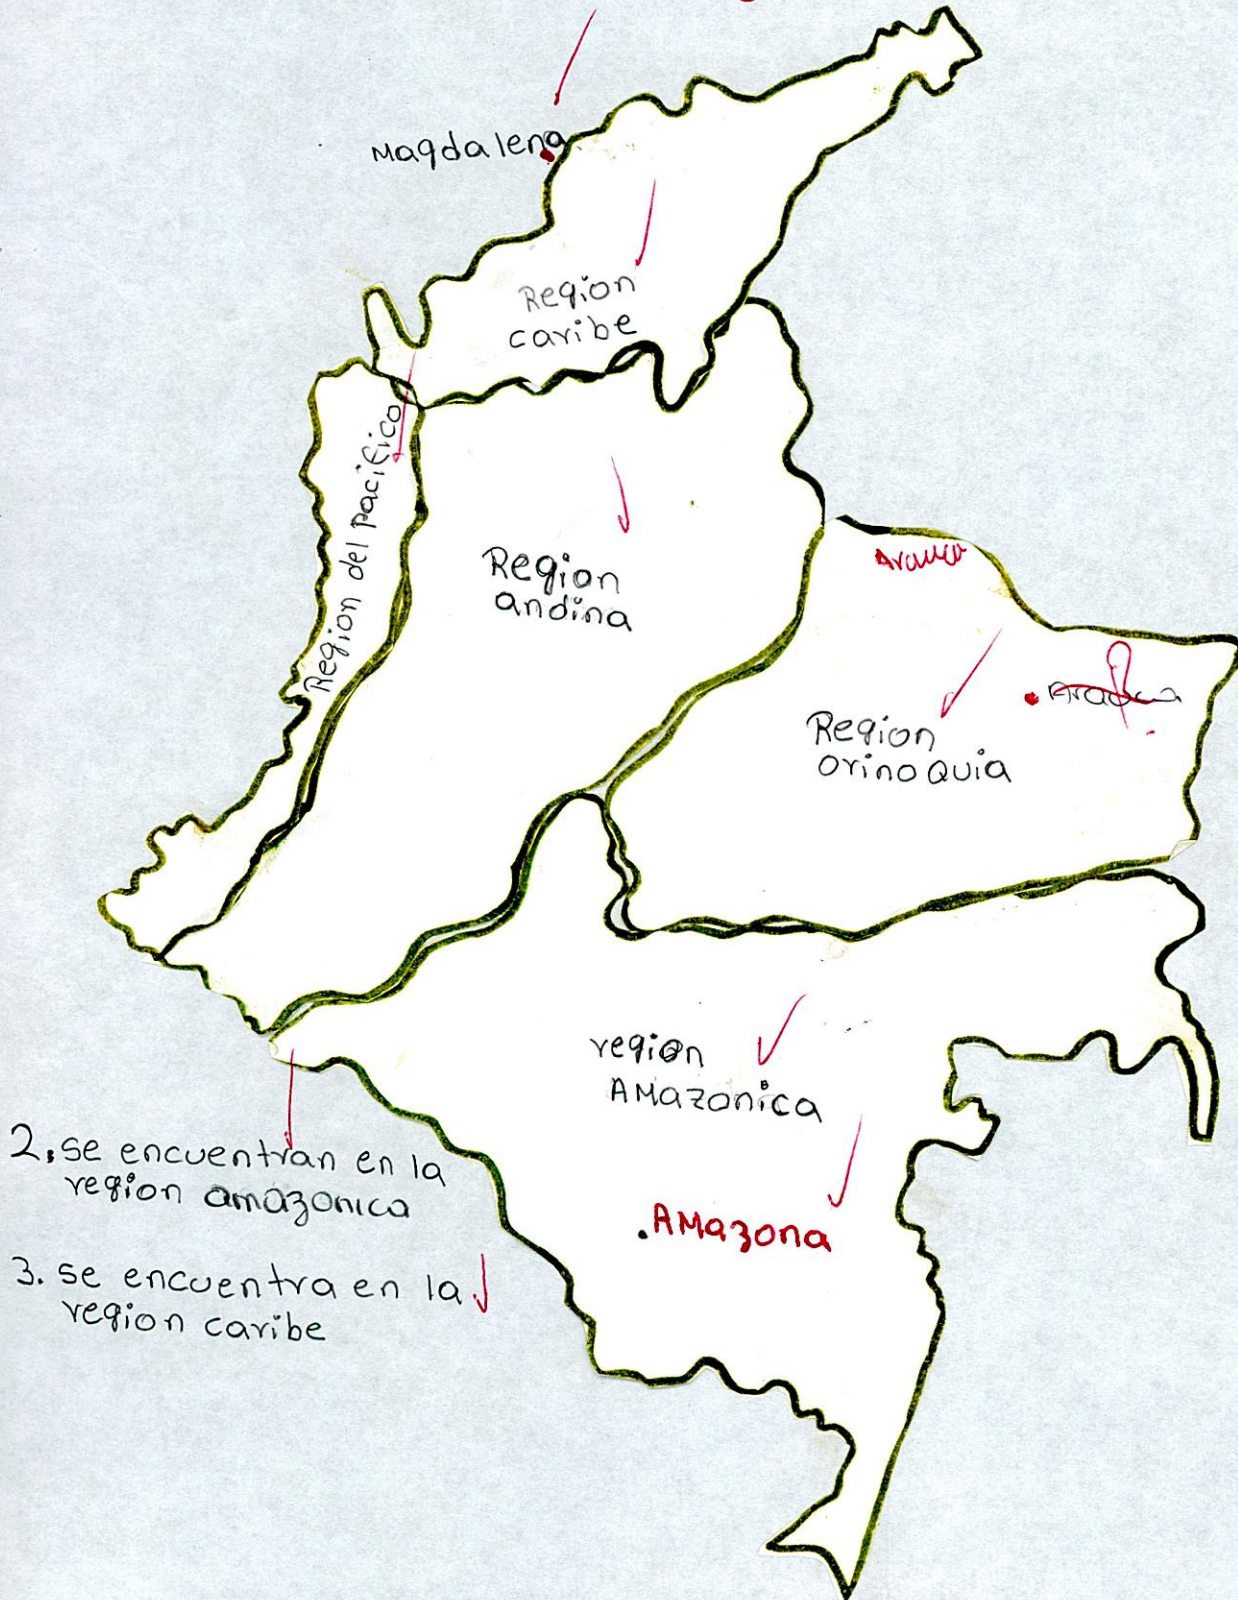 Magdalena
Region
caribe
Region del pacifico
Region
andina
Arauca
Arauca
Region
orinoquia
region
Amazonica
2. se encuentran en la
region amazonica
.Amazona
3. se encuentra en la
region caribe